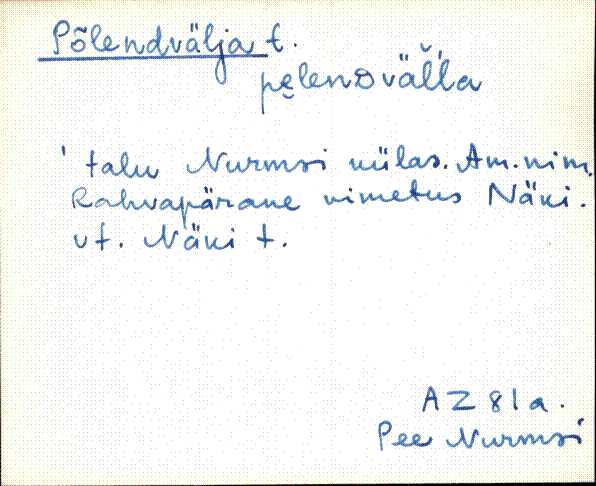 Põlendvälja t.
pe̮lenᴅväĺĺa
' talu Nurmsi külas. Am. nim.
Rahvapärane nimetus Näki.
vt. Näki t.
AZ 81a.
Pee Nurmsi